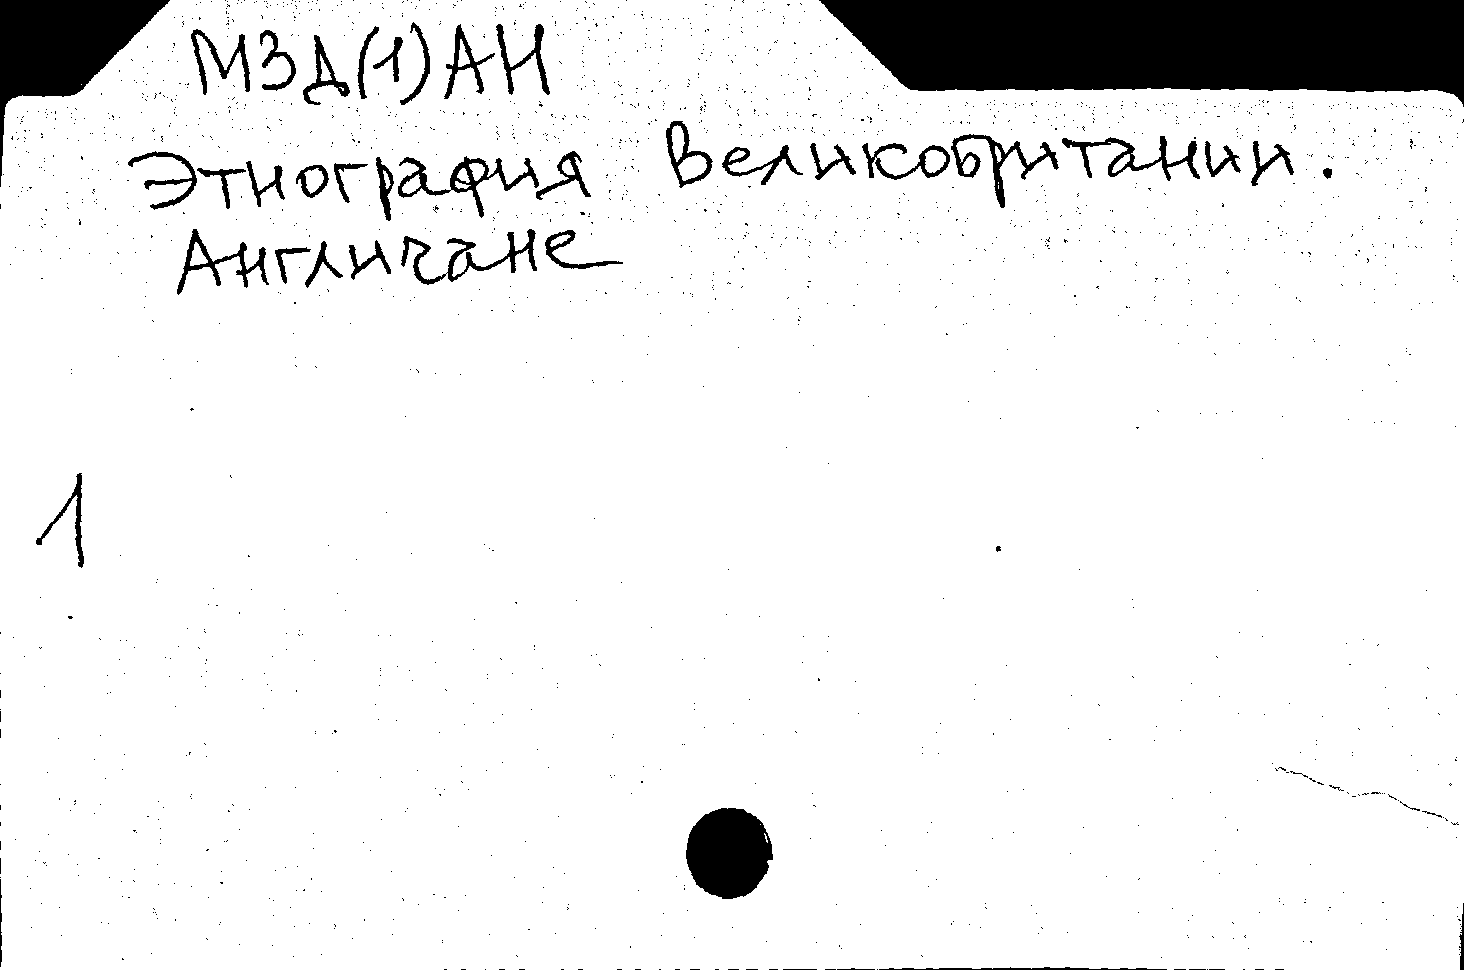 МЗД(1)АН
Этнография Великобритании.
Англичане
1